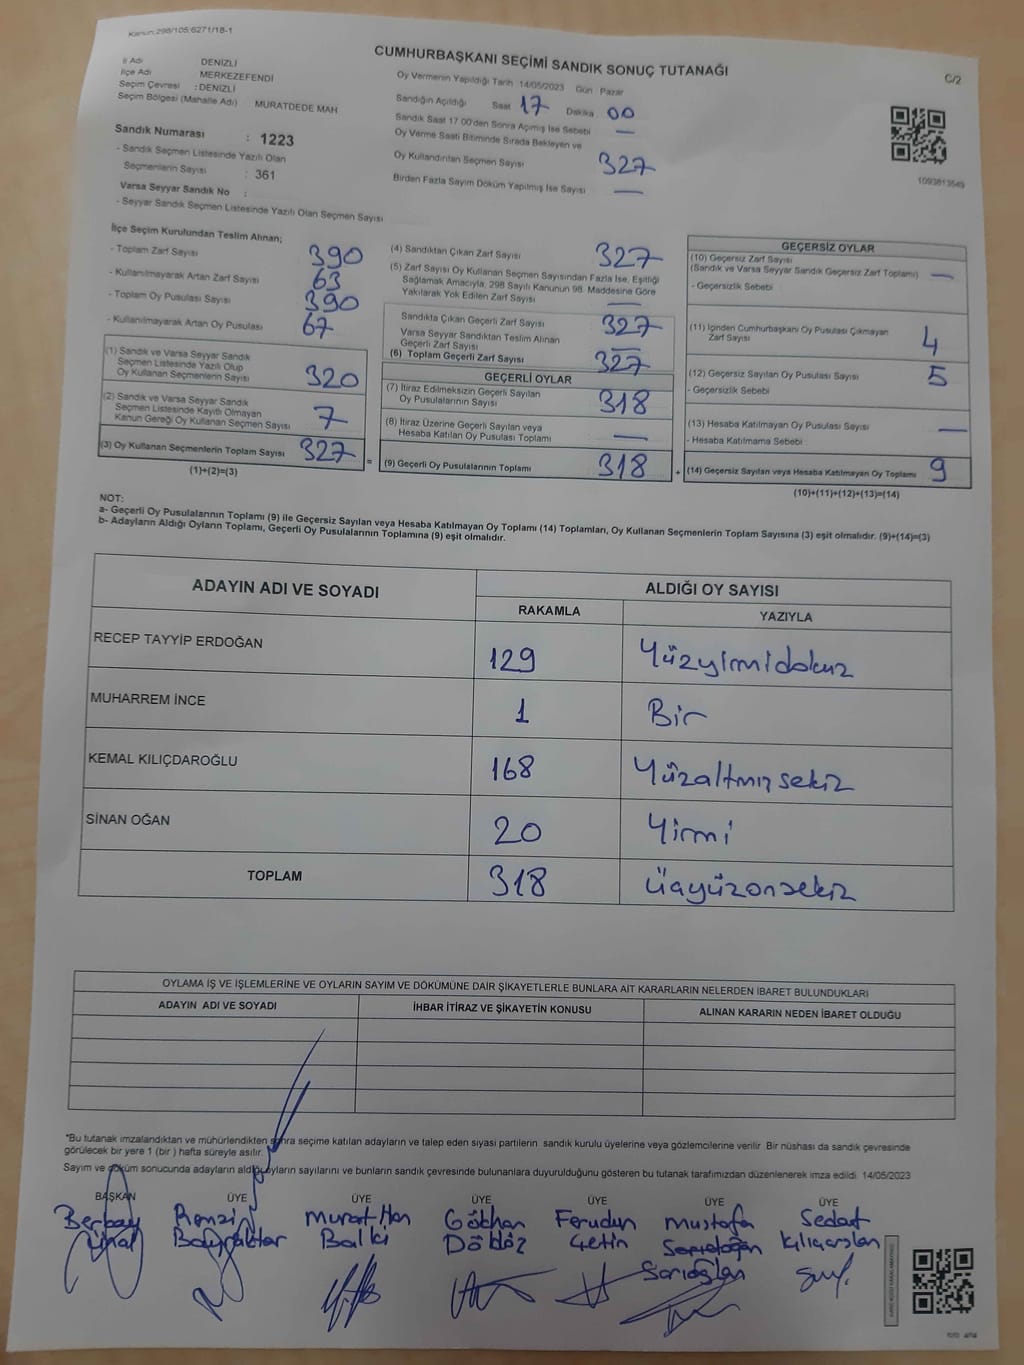 Kanun:298/105;6271/18-1
CUMHURBAŞKANI SEÇİMİ SANDIK SONUÇ TUTANAĞI
C/2
İl Adı DENİZLİ
İlçe Adı MERKEZEFENDİ
Seçim Çevresi : DENİZLİ
Seçim Bölgesi (Mahalle Adı) MURATDEDE MAH
Sandık Numarası : 1223
- Sandık Seçmen Listesinde Yazılı Olan
Seçmenlerin Sayısı : 361
Varsa Seyyar Sandık No :
- Seyyar Sandık Seçmen Listesinde Yazılı Olan Seçmen Sayısı
Oy Vermenin Yapıldığı Tarih 14/05/2023 Gün Pazar
Sandığın Açıldığı Saat 17 Dakika 00
Sandık Saat 17:00'den Sonra Açımış İse Sebebi —
Oy Verme Saati Bitiminde Sırada Bekleyen ve
Oy Kullandırılan Seçmen Sayısı 327
Birden Fazla Sayım Döküm Yapılmış İse Sayısı —
1093813549
İlçe Seçim Kurulundan Teslim Alınan;
- Toplam Zarf Sayısı 390
- Kullanılmayarak Artan Zarf Sayısı 63
- Toplam Oy Pusulası Sayısı 390
- Kullanılmayarak Artan Oy Pusulası 67
(1) Sandık ve Varsa Seyyar Sandık
Seçmen Listesinde Yazılı Olup
Oy Kullanan Seçmenlerin Sayısı 320
(2) Sandık ve Varsa Seyyar Sandık
Seçmen Listesinde Kayıtlı Olmayan
Kanun Gereği Oy Kullanan Seçmen Sayısı 7
(3) Oy Kullanan Seçmenlerin Toplam Sayısı 327
(1)+(2)=(3)
=
(4) Sandıktan Çıkan Zarf Sayısı 327
(5) Zarf Sayısı Oy Kullanan Seçmen Sayısından Fazla İse, Eşitliği
Sağlamak Amacıyla, 298 Sayılı Kanunun 98. Maddesine Göre
Yakılarak Yok Edilen Zarf Sayısı —
Sandıkta Çıkan Geçerli Zarf Sayısı 327
Varsa Seyyar Sandıktan Teslim Alınan
Geçerli Zarf Sayısı —
(6) Toplam Geçerli Zarf Sayısı 327
GEÇERLİ OYLAR
(7) İtiraz Edilmeksizin Geçerli Sayılan
Oy Pusulalarının Sayısı 318
(8) İtiraz Üzerine Geçerli Sayılan veya
Hesaba Katılan Oy Pusulası Toplamı —
(9) Geçerli Oy Pusulalarının Toplamı 318
+
GEÇERSİZ OYLAR
(10) Geçersiz Zarf Sayısı
(Sandık ve Varsa Seyyar Sandık Geçersiz Zarf Toplamı) —
- Geçersizlik Sebebi
(11) İçinden Cumhurbaşkanı Oy Pusulası Çıkmayan
Zarf Sayısı 4
(12) Geçersiz Sayılan Oy Pusulası Sayısı 5
- Geçersizlik Sebebi
(13) Hesaba Katılmayan Oy Pusulası Sayısı —
- Hesaba Katılmama Sebebi
(14) Geçersiz Sayılan veya Hesaba Katılmayan Oy Toplamı 9
(10)+(11)+(12)+(13)=(14)
NOT:
a- Geçerli Oy Pusulalarının Toplamı (9) ile Geçersiz Sayılan veya Hesaba Katılmayan Oy Toplamı (14) Toplamları, Oy Kullanan Seçmenlerin Toplam Sayısına (3) eşit olmalıdır. (9)+(14)=(3)
b- Adayların Aldığı Oyların Toplamı, Geçerli Oy Pusulalarının Toplamına (9) eşit olmalıdır.
ADAYIN ADI VE SOYADI
ALDIĞI OY SAYISI
RAKAMLA YAZIYLA
RECEP TAYYİP ERDOĞAN 129 Yüzyirmidokuz
MUHARREM İNCE 1 Bir
KEMAL KILIÇDAROĞLU 168 Yüzaltmışsekiz
SİNAN OĞAN 20 Yirmi
TOPLAM 318 Üçyüzonsekiz
OYLAMA İŞ VE İŞLEMLERİNE VE OYLARIN SAYIM VE DÖKÜMÜNE DAİR ŞİKAYETLERLE BUNLARA AİT KARARLARIN NELERDEN İBARET BULUNDUKLARI
ADAYIN ADI VE SOYADI İHBAR İTİRAZ VE ŞİKAYETİN KONUSU ALINAN KARARIN NEDEN İBARET OLDUĞU
*Bu tutanak imzalandıktan ve mühürlendikten sonra seçime katılan adayların ve talep eden siyasi partilerin sandık kurulu üyelerine veya gözlemcilerine verilir .Bir nüshası da sandık çevresinde
görülecek bir yere 1 (bir ) hafta süreyle asılır.
Sayım ve döküm sonucunda adayların aldığı oyların sayılarını ve bunların sandık çevresinde bulunanlara duyurulduğunu gösteren bu tutanak tarafımızdan düzenlenerek imza edildi. 14/05/2023
BAŞKAN ÜYE ÜYE ÜYE ÜYE ÜYE ÜYE
Berkay Remzi Murat Han Gökhan Ferudun Mustafa Sedat
Ünal Bayraktar Balki Dölöz Çetin Sarıoğlan Kılıçarslan
Sarıoğlan